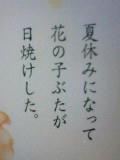 夏休みになって
花の子ぶたが
日焼けした。